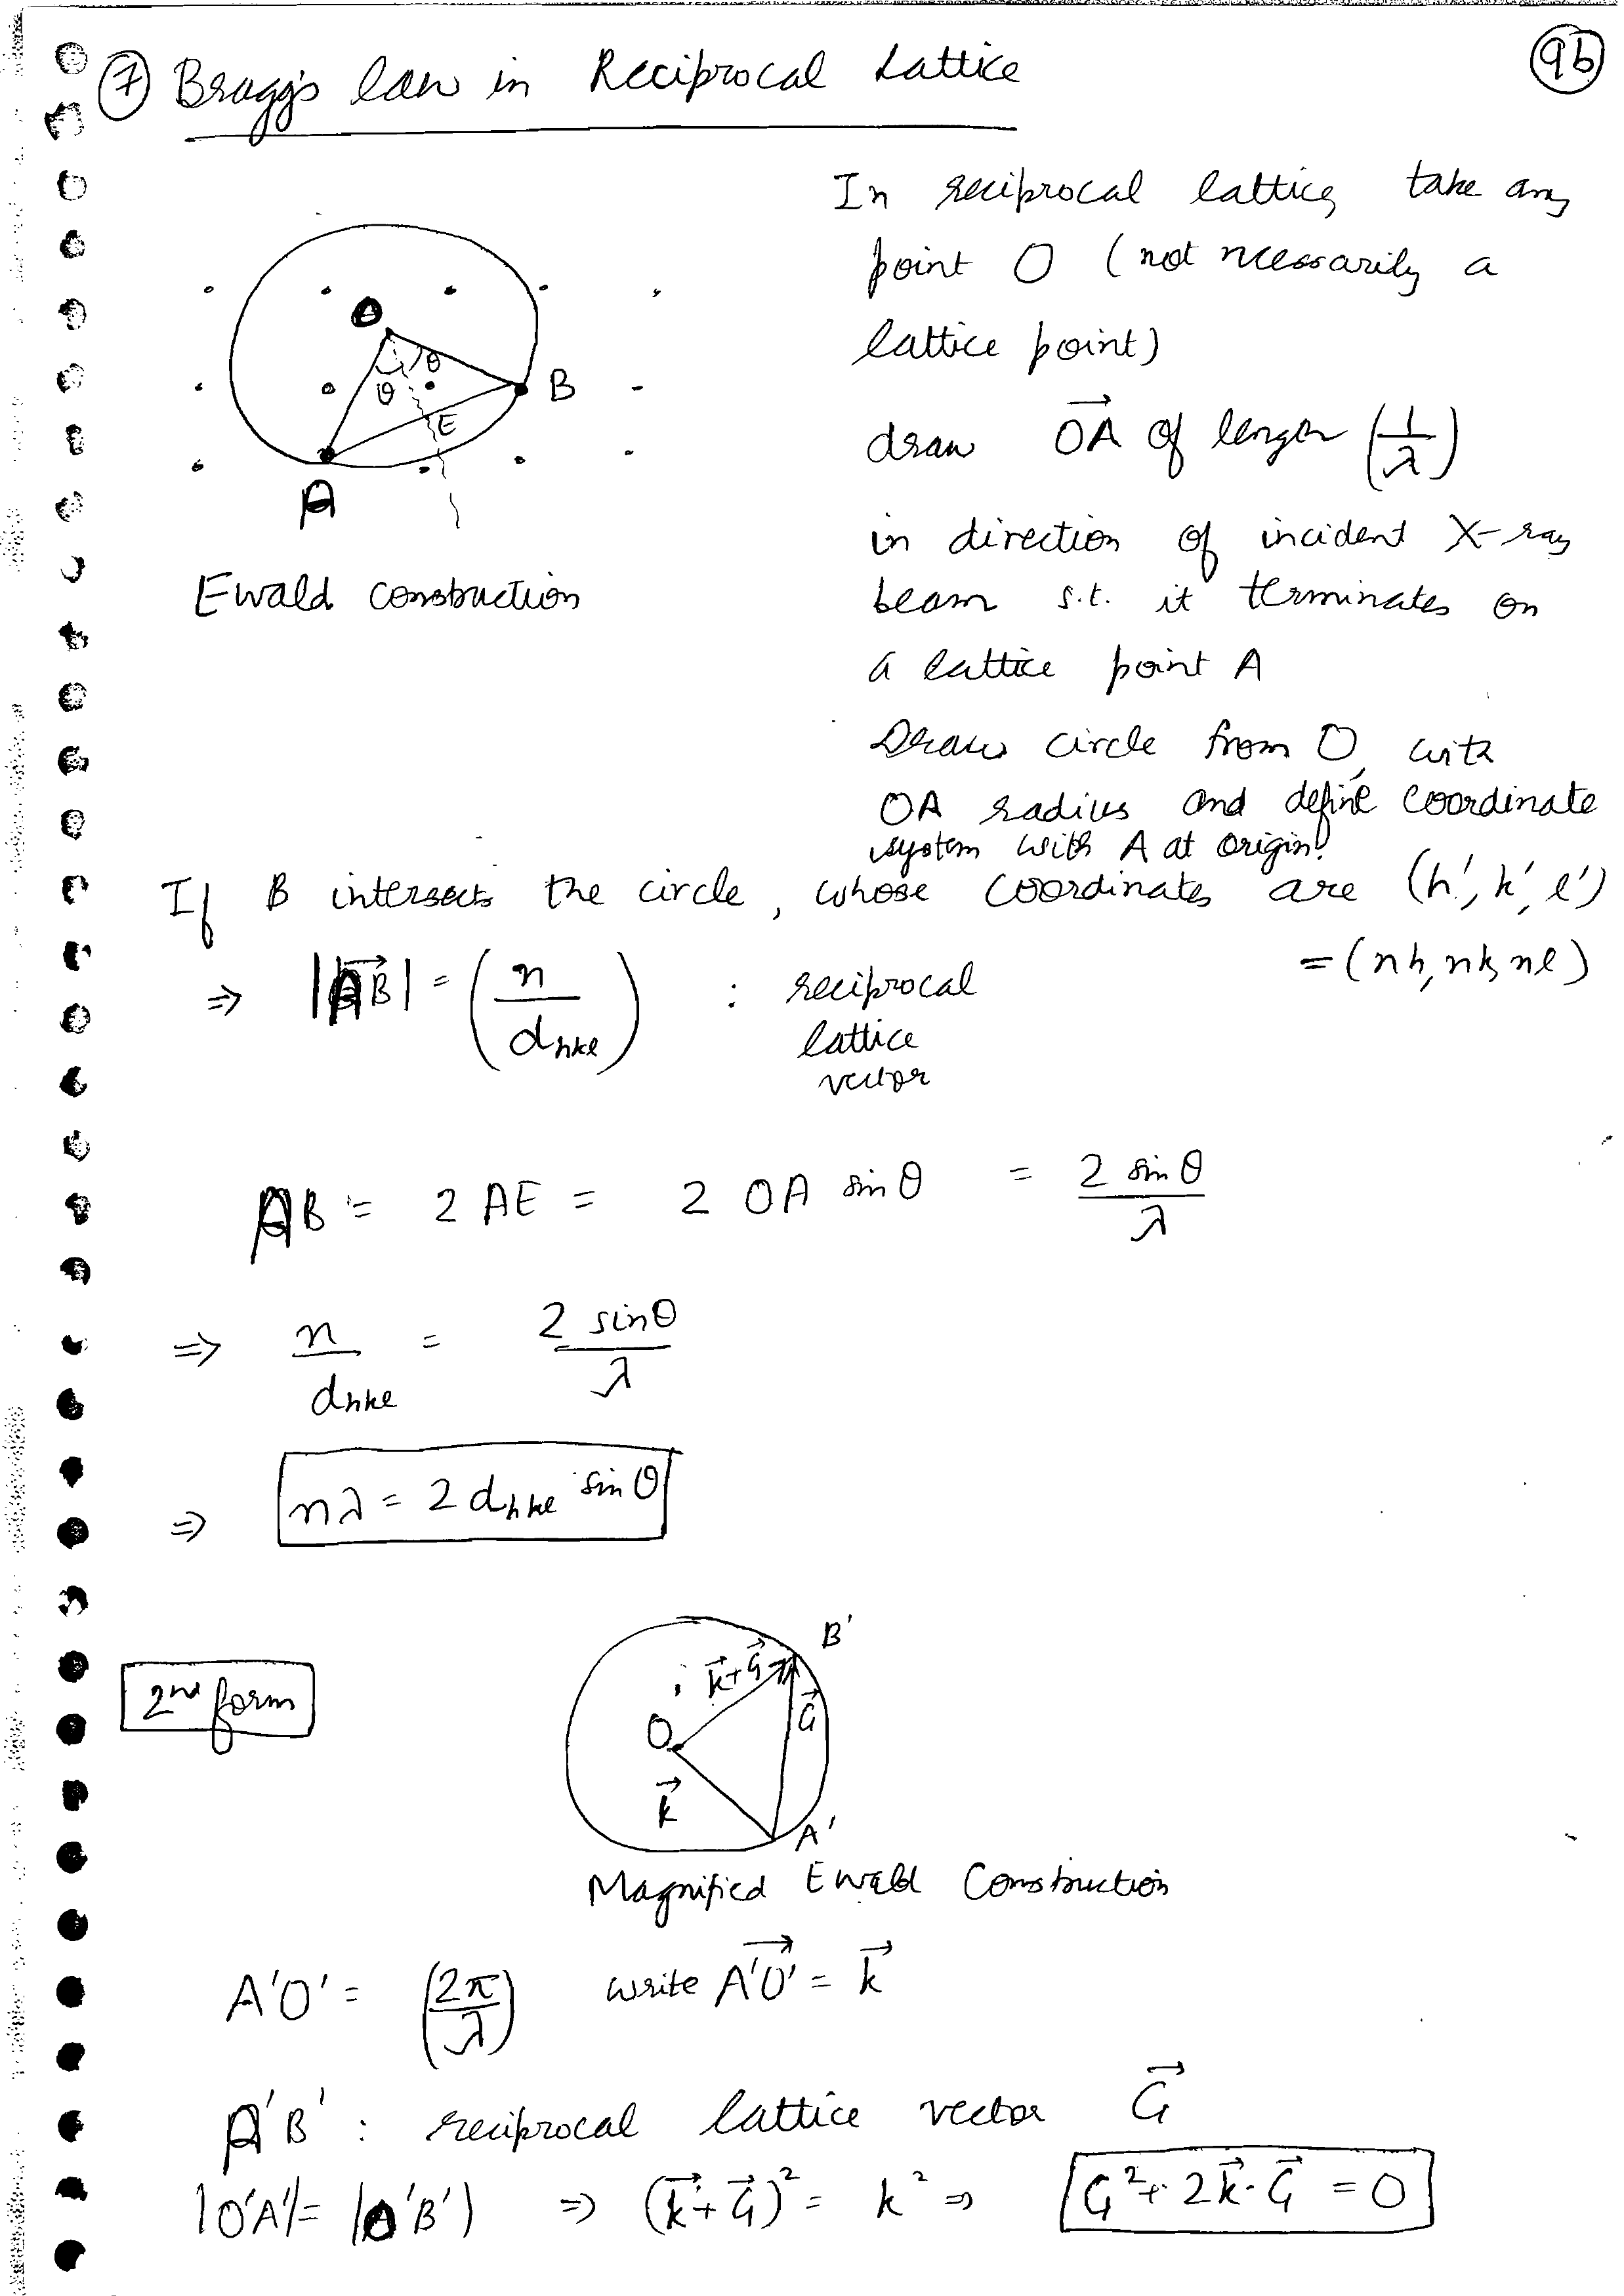 ⑦ Bragg's law in Reciprocal Lattice
9b
In reciprocal lattice, take any
point O (not ncessarily a
lattice point)
draw \vec{OA} of length (1/λ)
in direction of incident X-ray
beam s.t. it terminates on
a lattice point A
Draw circle from O, with
OA radius and define coordinate
system with A at origin.
O
θ
θ
E
B
A
Ewald construction
If B intersects the circle, whose coordinates are (h', k', l')
= (nh, nk, nl)
⇒ |\vec{AB}| = (n/d_{hkl}) : reciprocal
lattice
vector
AB = 2 AE = 2 OA sin θ = 2 sin θ/λ
⇒ n/d_{hkl} = 2 sin θ/λ
⇒ nλ = 2 d_{hkl} sin θ
2nd form
B'
\vec{k}+\vec{G}
\vec{G}
O
\vec{k}
A'
Magnified Ewald Construction
A'O' = (2π/λ) write \vec{A'O'} = \vec{k}
A'B' : reciprocal lattice vector \vec{G}
|O'A'| = |O'B'| ⇒ (\vec{k}+\vec{G})² = k² ⇒ G² + 2\vec{k}·\vec{G} = 0